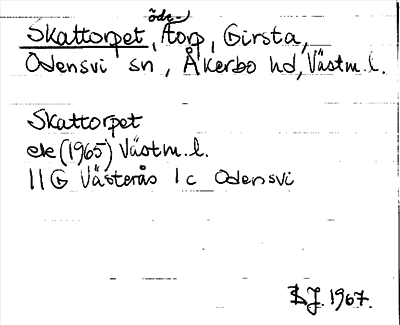 Skattorpet, öde-torp, Girsta,
Odensvi sn, Åkerbo hd, Västm.l.
Skattorpet
ek (1965) Västm.l.
11G Västerås 1c Odensvi
1967.